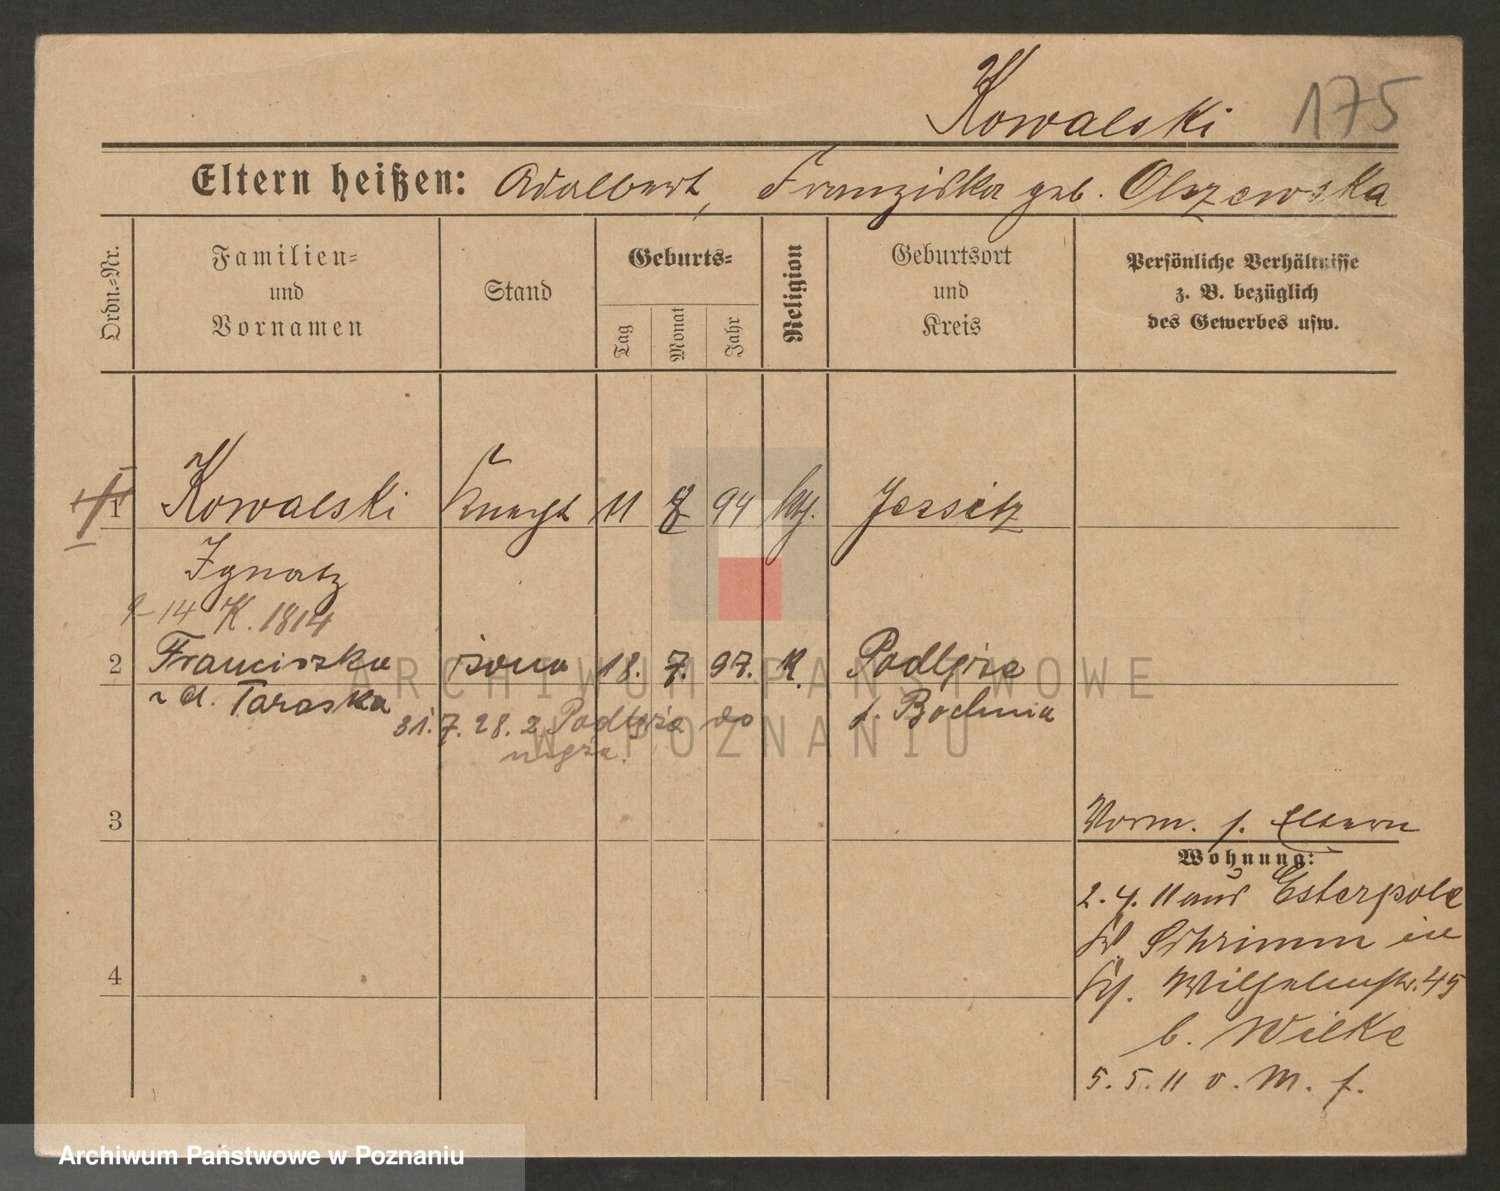 Kowalski 175
Eltern heißen: Adalbert, Franziska geb. Olszewska
Ordn.-Nr.
Familien-
und
Vornamen
Stand
Geburts-
Tag
Monat
Jahr
Religion
Geburtsort
und
Kreis
Persönliche Verhältnisse
z. B. bezüglich
des Gewerbes usw.
1 Kowalski Knecht 11 7 94 kth. Jerssitz
Ignatz
14 K. 1814
2 Franciszka żona 18. 7. 97. k. Podłęże
z d. Taraska p. Bochnia
31.7.28. z Podłęża do
męża.
3
Vorm. s. Eltern
Wohnung:
2. 4. 11 aus Esterpole
Kr. Schrimm in
Wilhelmstr. 45
b. Wilke
4
5. 5. 11 v. M. f.
ARCHIWUM PAŃSTWOWE
W POZNANIU
Archiwum Państwowe w Poznaniu